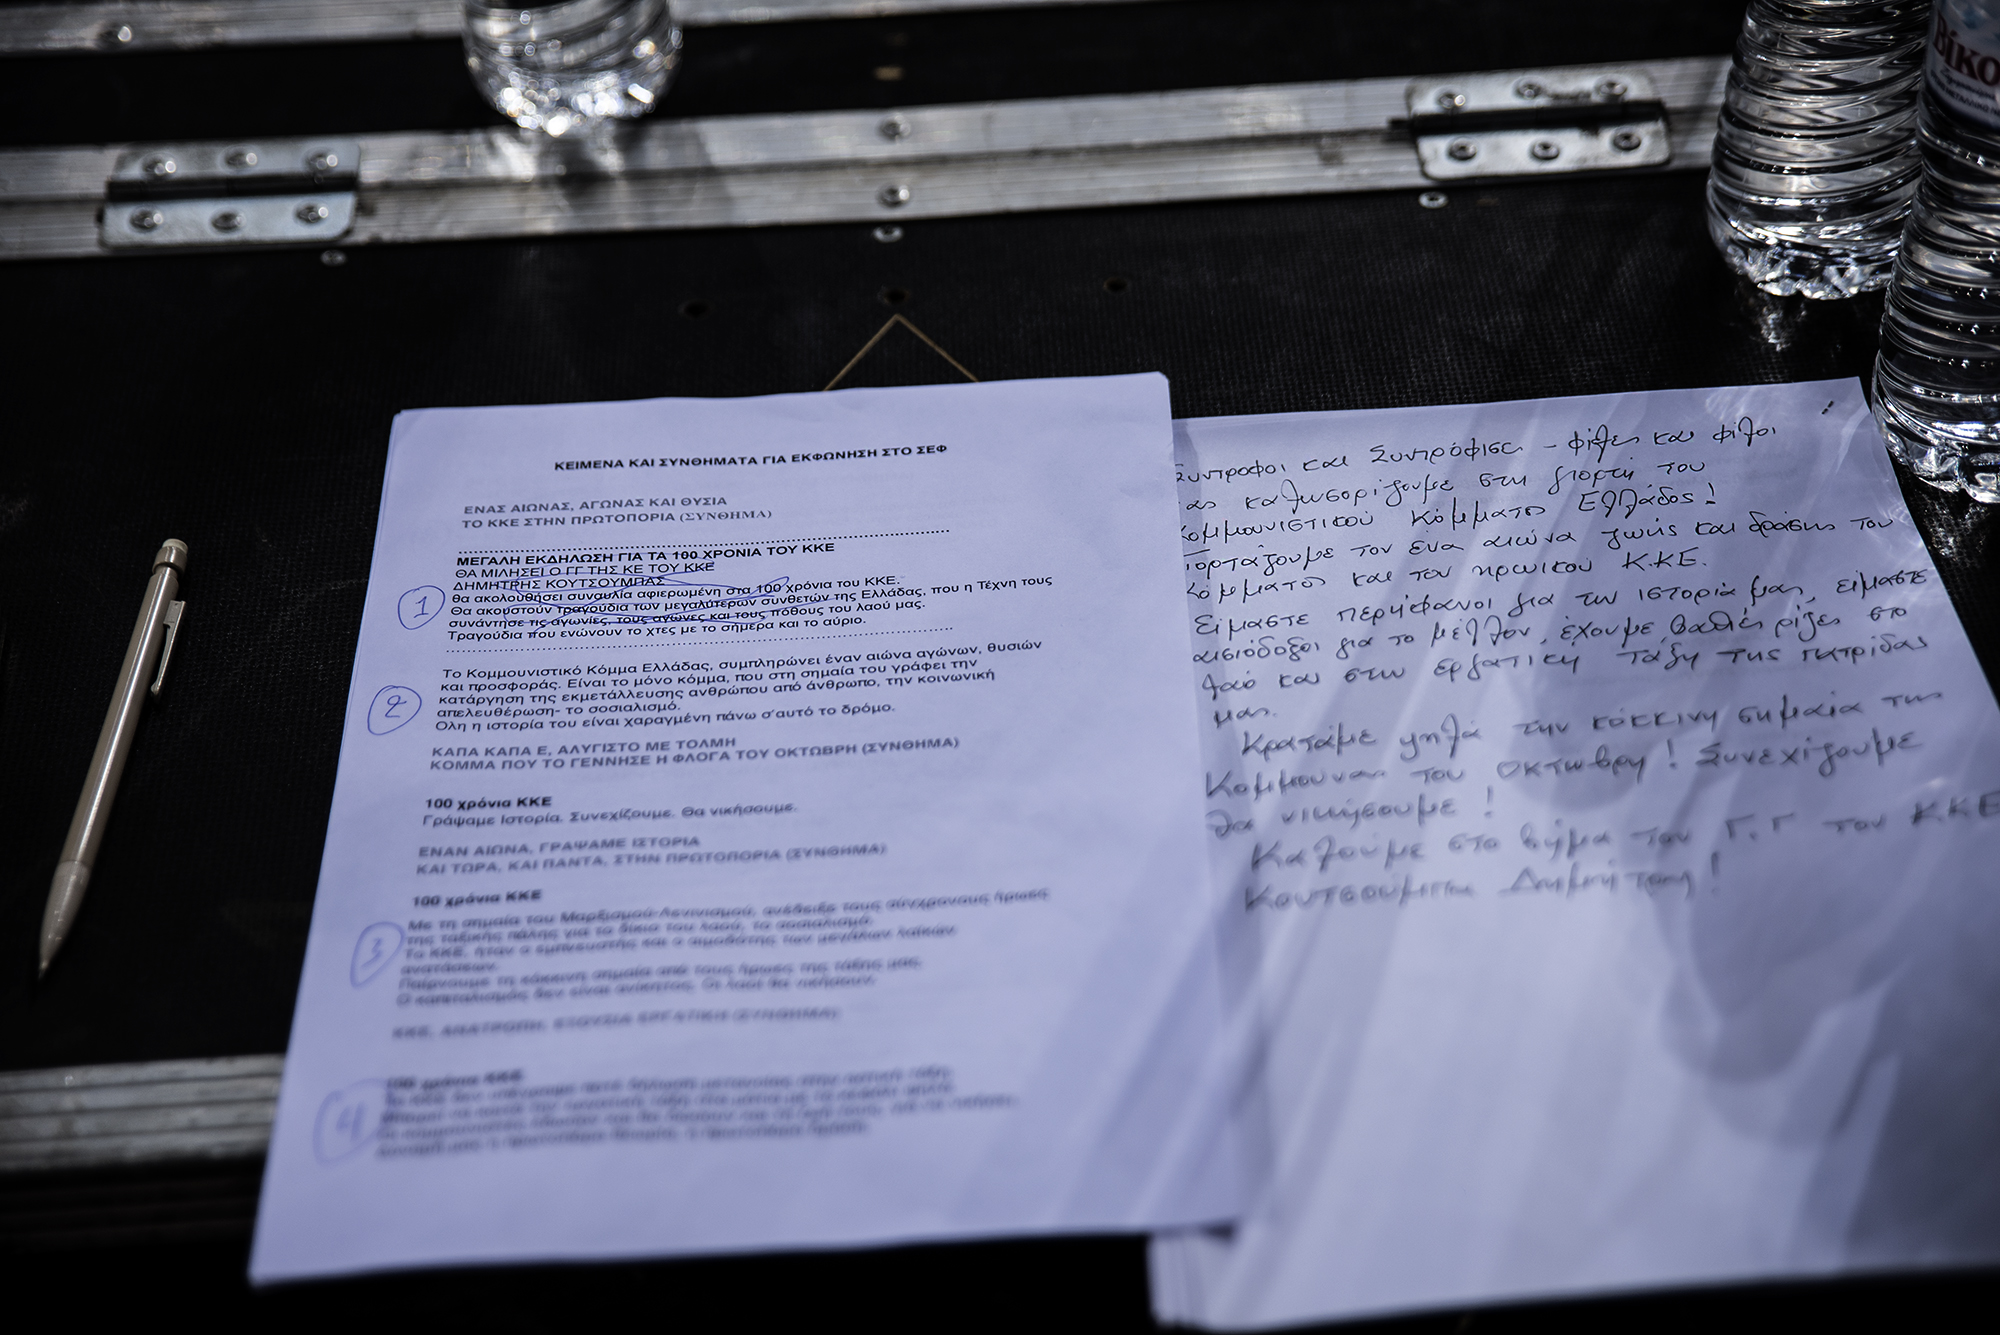 Βίκο
ΚΕΙΜΕΝΑ ΚΑΙ ΣΥΝΘΗΜΑΤΑ ΓΙΑ ΕΚΦΩΝΗΣΗ ΣΤΟ ΣΕΦ
ΕΝΑΣ ΑΙΩΝΑΣ, ΑΓΩΝΑΣ ΚΑΙ ΘΥΣΙΑ
ΤΟ ΚΚΕ ΣΤΗΝ ΠΡΩΤΟΠΟΡΙΑ (ΣΥΝΘΗΜΑ)
ΜΕΓΑΛΗ ΕΚΔΗΛΩΣΗ ΓΙΑ ΤΑ 100 ΧΡΟΝΙΑ ΤΟΥ ΚΚΕ
ΘΑ ΜΙΛΗΣΕΙ Ο ΓΓ ΤΗΣ ΚΕ ΤΟΥ ΚΚΕ
ΔΗΜΗΤΡΗΣ ΚΟΥΤΣΟΥΜΠΑΣ
1
θα ακολουθήσει συναυλία αφιερωμένη στα 100 χρόνια του ΚΚΕ.
Θα ακουστούν τραγούδια των μεγαλύτερων συνθετών της Ελλάδας, που η Τέχνη τους
συνάντησε τις αγωνίες, τους αγώνες και τους πόθους του λαού μας.
Τραγούδια που ενώνουν το χτες με το σήμερα και το αύριο.
2
Το Κομμουνιστικό Κόμμα Ελλάδας, συμπληρώνει έναν αιώνα αγώνων, θυσιών
και προσφοράς. Είναι το μόνο κόμμα, που στη σημαία του γράφει την
κατάργηση της εκμετάλλευσης ανθρώπου από άνθρωπο, την κοινωνική
απελευθέρωση- το σοσιαλισμό.
Ολη η ιστορία του είναι χαραγμένη πάνω σ'αυτό το δρόμο.
ΚΑΠΑ ΚΑΠΑ Ε, ΑΛΥΓΙΣΤΟ ΜΕ ΤΟΛΜΗ
ΚΟΜΜΑ ΠΟΥ ΤΟ ΓΕΝΝΗΣΕ Η ΦΛΟΓΑ ΤΟΥ ΟΚΤΩΒΡΗ (ΣΥΝΘΗΜΑ)
100 χρόνια ΚΚΕ
Γράψαμε Ιστορία. Συνεχίζουμε. Θα νικήσουμε.
ΕΝΑΝ ΑΙΩΝΑ, ΓΡΑΨΑΜΕ ΙΣΤΟΡΙΑ
ΚΑΙ ΤΩΡΑ, ΚΑΙ ΠΑΝΤΑ, ΣΤΗΝ ΠΡΩΤΟΠΟΡΙΑ (ΣΥΝΘΗΜΑ)
100 χρόνια ΚΚΕ
3
Με τη σημαία του Μαρξισμού-Λενινισμού, ανέδειξε τους σύγχρονους ήρωες
της ταξικής πάλης για το δίκιο του λαού, το σοσιαλισμό.
Το ΚΚΕ, ήταν ο εμπνευστής και ο αιμοδότης των μεγάλων λαϊκών
ανατάσεων.
Παίρνουμε τη κόκκινη σημαία από τους ήρωες της τάξης μας.
Ο καπιταλισμός δεν είναι ανίκητος. Οι λαοί θα νικήσουν.
ΚΚΕ, ΑΝΑΤΡΟΠΗ, ΕΞΟΥΣΙΑ ΕΡΓΑΤΙΚΗ (ΣΥΝΘΗΜΑ)
4
100 χρόνια ΚΚΕ
Σύντροφοι και Συντρόφισες - φίλες και φίλοι
σας καλωσορίζουμε στη γιορτή του
Κομμουνιστικού Κόμματος Ελλάδος!
Γιορτάζουμε τον ένα αιώνα ζωής και δράσης του
Κόμματος και του ηρωικού Κ.Κ.Ε.
Είμαστε περήφανοι για την ιστορία μας, είμαστε
αισιόδοξοι για το μέλλον, έχουμε βαθιές ρίζες στο
λαό και στην εργατική τάξη της πατρίδας
μας.
Κρατάμε ψηλά την κόκκινη σημαία της
Κομμούνας του Οκτώβρη! Συνεχίζουμε
θα νικήσουμε!
Καλούμε στο βήμα τον Γ.Γ του Κ.Κ.Ε
Κουτσούμπα Δημήτρη!